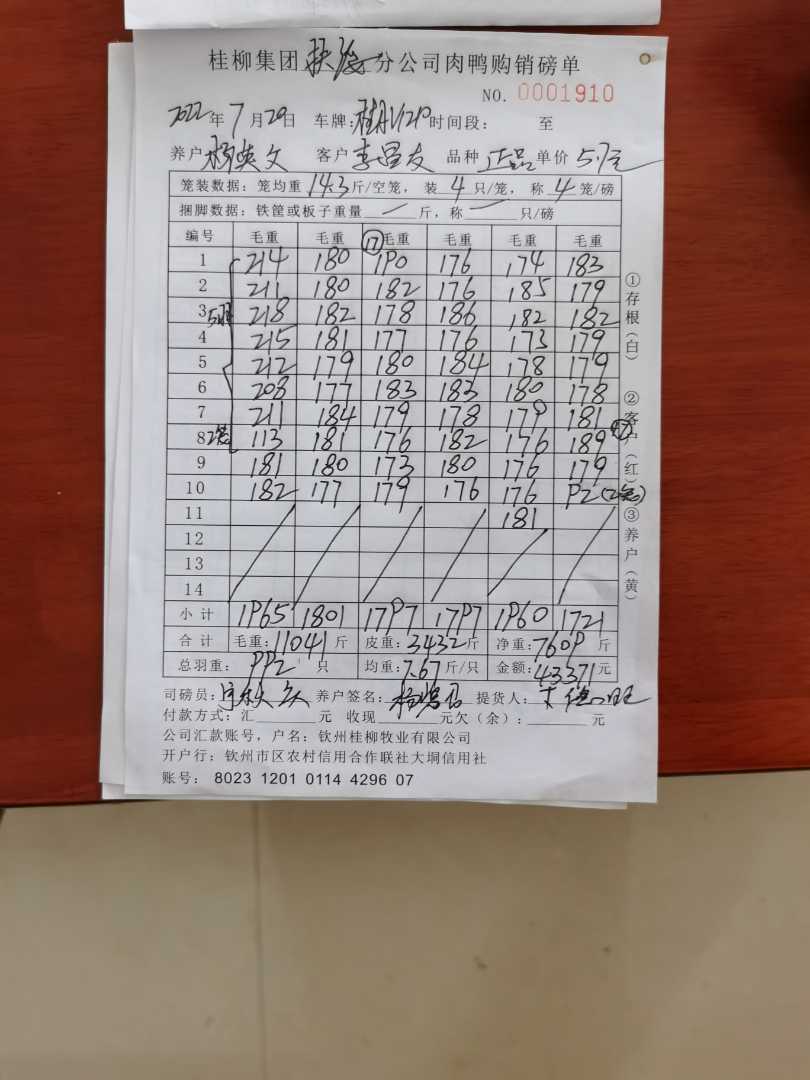 桂柳集团扶发分公司肉鸭购销磅单
NO. 0001910
2022年7月20日 车牌: 时间段: 至
养户 客户 李昌友 品种 正品 单价 5.7元
笼装数据: 笼均重 14.3 斤/空笼, 装 4 只/笼, 称 4 笼/磅
捆脚数据: 铁筐或板子重量 / 斤, 称 / 只/磅
编号 毛重 毛重 ⑰ 毛重 毛重 毛重 毛重
1 214 180 190 176 174 183
2 211 180 182 176 185 179
3 5 218 182 178 186 182 182
4 215 181 177 176 173 179
5 212 179 180 184 178 179
6 208 177 183 183 180 178
7 211 184 179 178 179 181
8 2笼 113 181 176 182 176 189
9 181 180 173 180 176 179
10 182 177 179 176 176 92 (2笼)
11 181
12
13
14
小计 1965 1801 1797 1797 1960 1721
合计 毛重: 11041 斤 皮重: 3432 斤 净重: 7609 斤
总羽重: 992 只 均重: 7.67 斤/只 金额: 43371 元
司磅员: 养户签名: 提货人:
付款方式: 汇 元 收现 元 欠(余): 元
公司汇款账号, 户名: 钦州桂柳牧业有限公司
开户行: 钦州市区农村信用合作联社大垌信用社
账号: 8023 1201 0114 4296 07
①存根(白) ②客户(红) ③养户(黄)